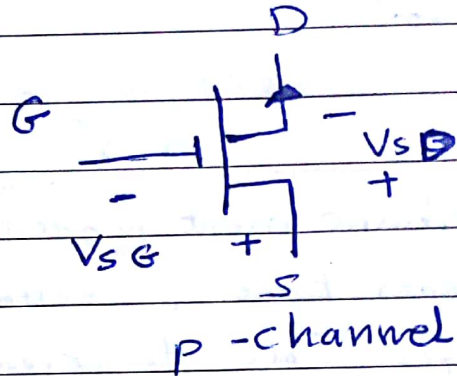 D
G
-
VSD
-
+
VSG +
S
p-channel